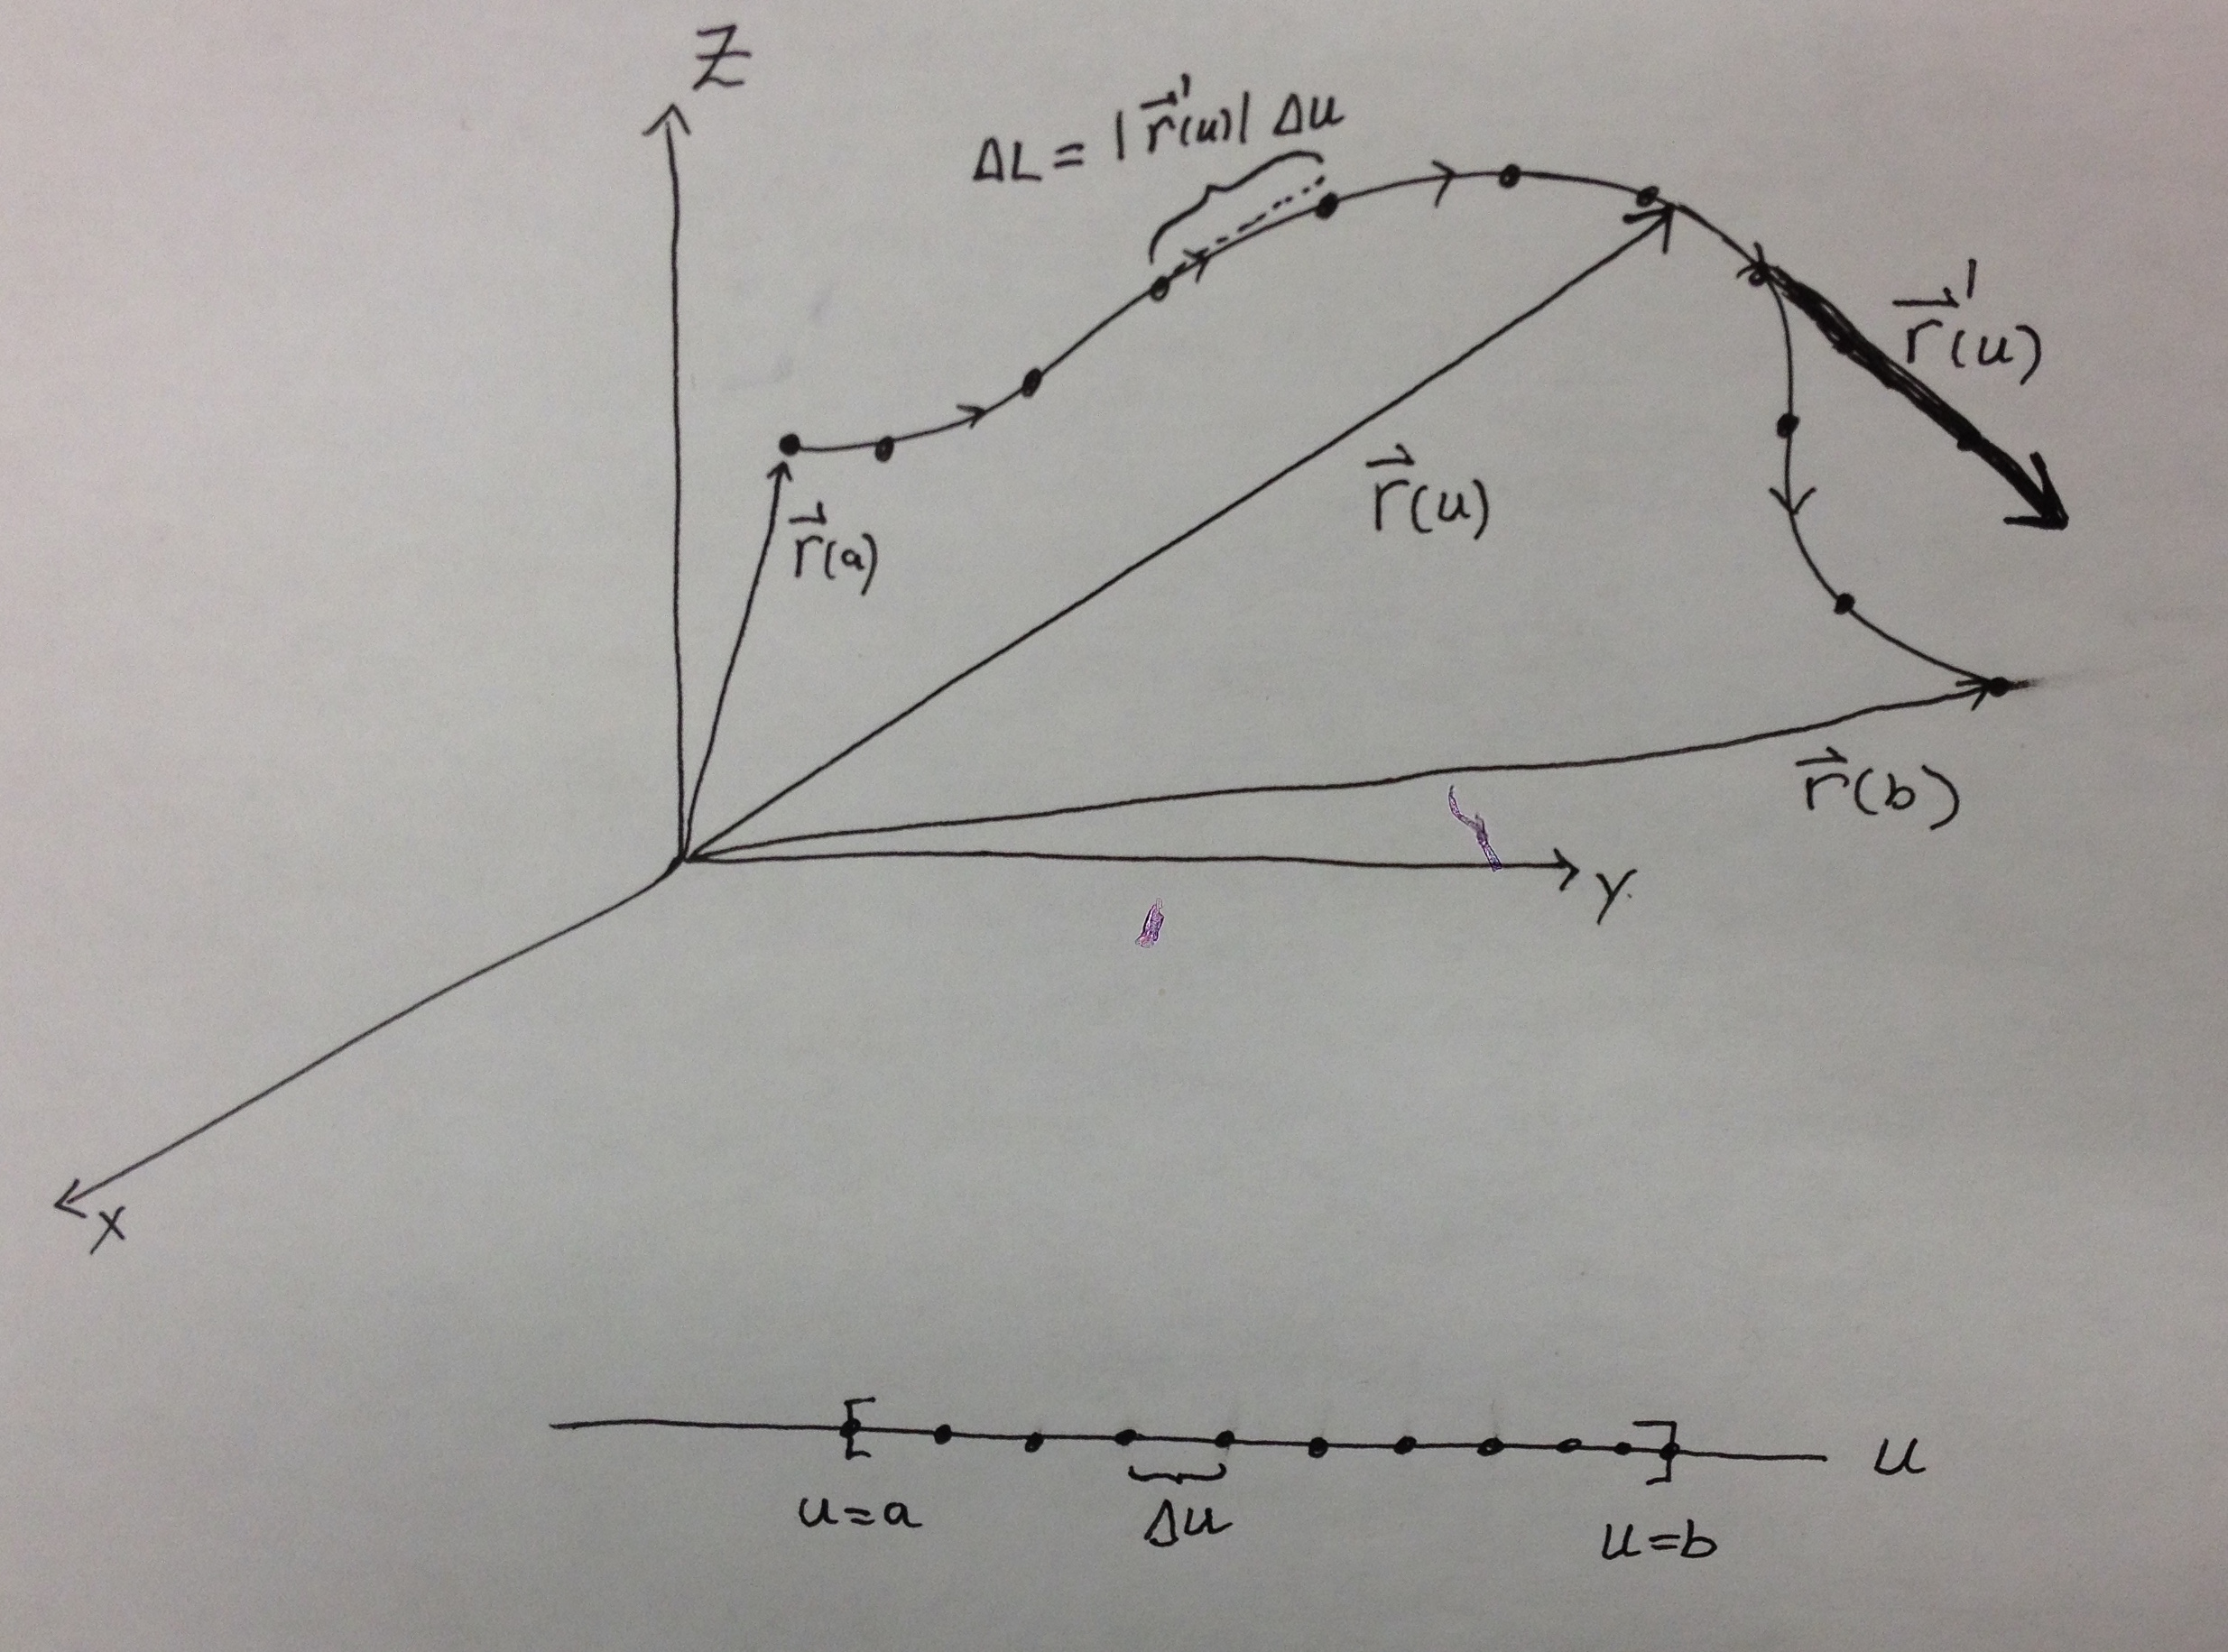 Z
ΔL = |r⃗'(u)| Δu
r⃗'(u)
r⃗(u)
r⃗(a)
r⃗(b)
y
x
u
u=a
Δu
u=b